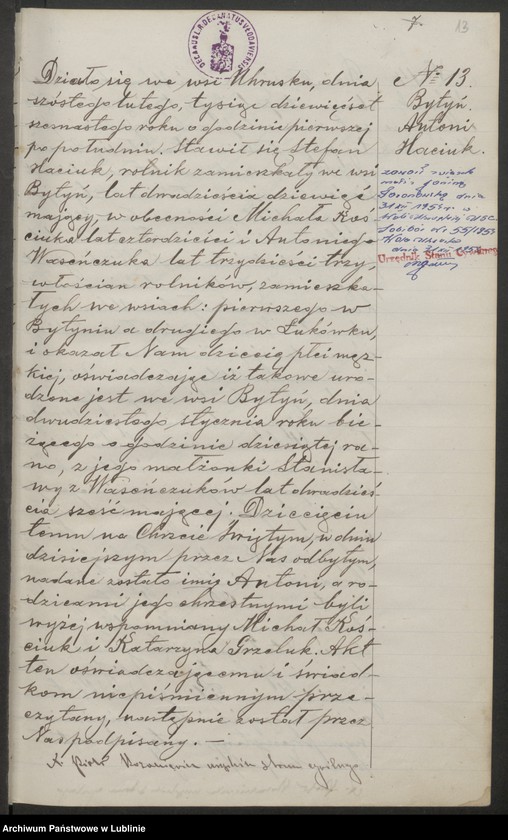 7. 13
DZIEKAN S.R. DEKANATUS VLODAVIENSIS
Działo się we wsi Uhrusku, dnia
szóstego lutego, tysiąc dziewięćset
szesnastego roku o godzinie pierwszej
po południu. Stawił się Stefan
Haciuk, rolnik zamieszkały we wsi
Bytyń, lat dwadzieścia dziewięć
mający, w obecności Michała Koś-
ciuka lat czterdzieści i Antoniego
Waseńczuka lat trzydzieści trzy,
włościan rolników, zamieszka-
łych we wsiach: pierwszego w
Bytyniu a drugiego w Łukówku,
i okazał Nam dziecię płci męz-
kiej, oświadczając iż takowe uro-
dzone jest we wsi Bytyn, dnia
dwudziestego stycznia roku bie-
żącego o godzinie dziesiątej ra-
no, z jego małżonki Stanisła-
wy z Waseńczuków lat dwadzieś-
cia sześć mającej. Dziecięciu
temu na Chrzcie Świętym, w dniu
dzisiejszym przez Nas odbytym,
nadane zostało imię Antoni, a ro-
dzicami jego chrzestnymi byli
wyżej wspomniany Michał Koś-
ciuk i Katarzyna Grzeluk. Akt
ten oświadczającemu i świad-
kom niepiśmiennym prze-
czytany, następnie został przez
Nas podpisany. —
X. Piotr utrzymujący akta stanu cywilnego
№ 13.
Bytyń.
Antoni
Haciuk.
zawarł związek
małż. z Janiną
dnia
31 XII 1959 r. w
USC
Sobibór Nr 55/1959
dnia 31 XII 1959
Urzędnik Stanu Cywilnego
Archiwum Państwowe w Lublinie